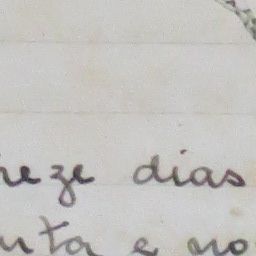 reze dias
nta e no